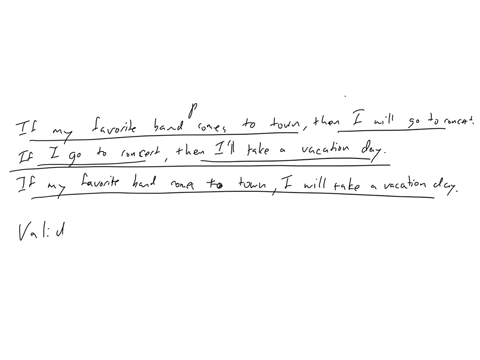 p
If my favorite band comes to town, then I will go to concert.
If I go to concert, then I'll take a vacation day.
If my favorite band comes to town, I will take a vacation day.
Valid